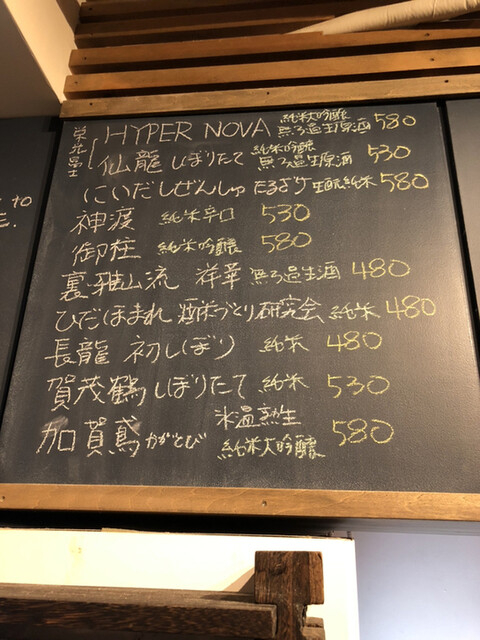 栄光冨士 HYPER NOVA 純米大吟醸 無ろ過生原酒 580
仙龍 しぼりたて 純米吟醸 無ろ過生原酒 530
にいだしぜんしゅ たるざけ 生酛純米 580
神渡 純米辛口 530
御柱 純米吟醸 580
裏・雅山流 祥華 無ろ過生酒 480
ひだほまれ 酒米づくり研究会 純米 480
長龍 初しぼり 純米 480
賀茂鶴 しぼりたて 純米 530
加賀鳶 かがとび 氷温熟生 純米大吟醸 580
to